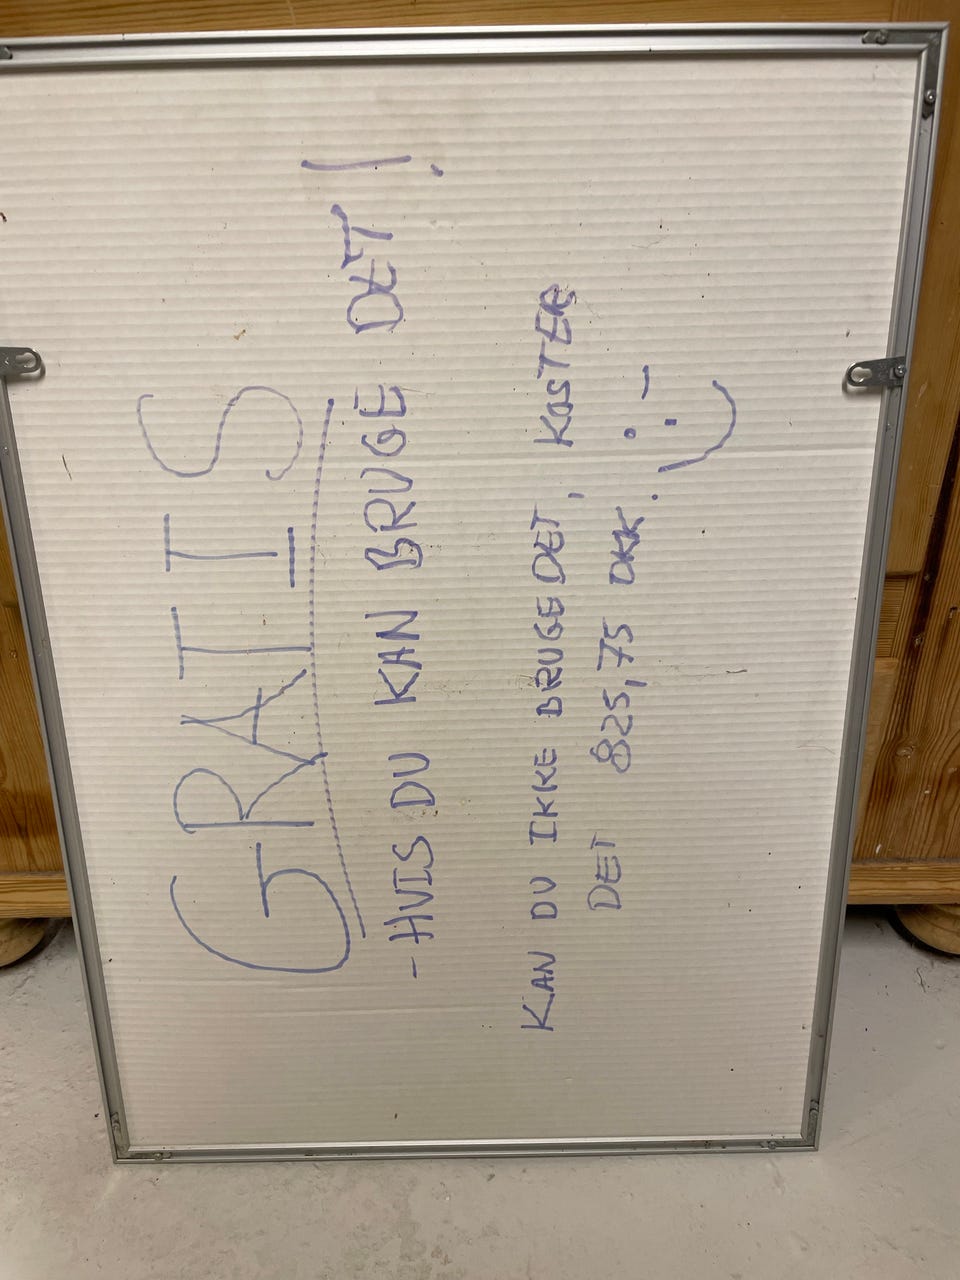 GRATIS
- HVIS DU KAN BRUGE DET!
KAN DU IKKE BRUGE DET, KOSTER
DET 825,75 DKK.